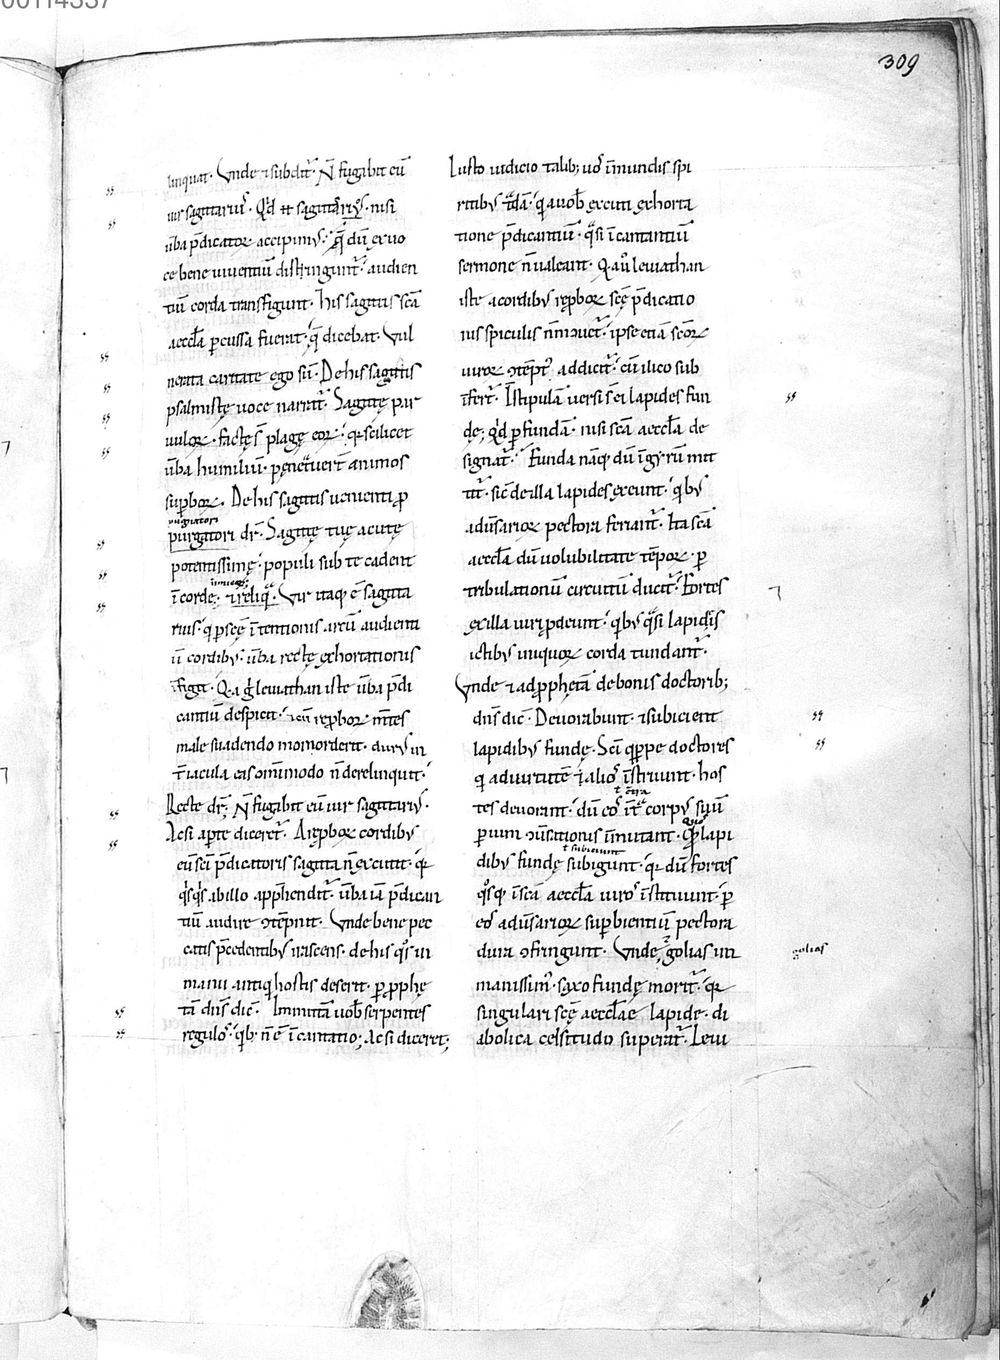 00114337
309
linquat. Unde ⁊ subdit̄. N̄ fugabit eū
uir sagittariꝰ. Qͥd ⁊t sagittariꝰ. nisi
ūba p̄dicatoꝝ accipimꝰ. q̄ dū ex uo
ce bene uiuentiū distringunt̄. audien
tiū corda transfigunt. His sagittis sc̄a
aeccl̄a ꝑcussa fuerat. q̄ dicebat. Vul
nerata caritate ego sū. De his sagittis
psalmistę uoce narrat̄. Sagittę par
uuloꝝ. factę s̄ plagę eoꝝ. qꝛ scilicet
ūba humiliū. penetͣuer̄t animos
suꝑboꝝ. De his sagittis uenienti ꝓ
pugnatori
purgatori dr̄. Sagittę tuę acutę
potentissimę. populi sub te cadent
inimicoꝝ
ī corde. ⁊ reliq̄. Vir itaqꝫ ē sagitta
rius. q̇ ꝑ sc̄ę ītentionis arcū audienti
ū cordibꝰ. ūba rectę exhortationis
īfigit. Q̇a g̊ leuiathan iste ūba p̄di
cantiū despicit. ⁊ cū reꝓboꝝ m̄tes
male suadendo momorderit. durꝰ in
t̄ iacula eas om̄imodo n̄ derelinquit.
Recte dr̄; N̄ fugabit eū uir sagittariꝰ.
Ac si aꝑte diceret̄. A reꝓboꝝ cordibꝰ
eū sc̄i p̄dicatoris sagitta n̄ excutit. qꝛ
qͥsqͥs ab illo app̄hendit̄. ūba iā p̄dican
tiū audire ꝯtēpnit. Unde bene pec
catis p̄cedentibꝰ irascens. de his qͦs in
manu antiqͥ hostis deserit. ꝑ ꝓphę
tā dn̄s dic̄. Immittā uob̄ serpentes
regulos. qͥbꝫ n̄ ē īcantatio; Ac si diceret;
Iusto iudicio talibꝫ uos īmundis spi
ritibꝰ tͣdā. q̇ a uob̄ excuti exhorta
tione p̄dicantiū. qͣsi īcantantiū
sermone n̄ ualeant. Q̇ a ū leuiathan
iste a cordibꝰ reꝓboꝝ sc̄ę p̄dicatio
nis spiculis n̄ mouet̄. ipse etiā sc̄oꝝ
uiroꝝ ꝯtēptꝰ addicit̄. cū ilico sub
īfert̄. Ī stipulā uersi s̄ ei lapides fun
dę; qͥd ꝑ fundā. nisi sc̄a aeccl̄a de
signat̄. Funda nāqꝫ dū ī gyrū mit
tit̄. sic de illa lapides exeunt. qͥbꝰ
adūsarioꝝ pectora feriant̄. Ita sc̄a
aeccl̄a dū uolubilitate tēpoꝝ. ꝑ
tribulationū circuitū ducit̄. Fortes
ex illa uiri ꝓdeunt. qͥbꝰ qͣsi lapidis
ictibꝰ iniquoꝝ corda tundant̄.
Unde ⁊ ad ꝓphetā de bonis doctoribꝫ
dn̄s dic̄. Deuorabunt. ⁊ subicient
lapidibꝰ fundę. Sc̄i qͥppe doctores
q̇ ad uirtutē ⁊ alios īstruunt. hos
tes deuorant. dū eos ītͣ corpꝰ suū
ꝑ uim ꝯūsationis īmutant. Qͦs lapi
ł subiciunt
dibꝰ fundę subigunt. qꝛ dū fortes
qͦsqꝫ ī sc̄a aeccl̄a uiros īstituunt. ꝑ
eos adūsarioꝝ suꝑbientiū pectora
dura ꝯfringunt. Unde ⁊ golias in
manissimꝰ. saxo fundę morit̄. qꝛ
singulari sc̄ę aeccl̄ae lapide. di
abolica celsitudo suꝑat̄. Leui
golias